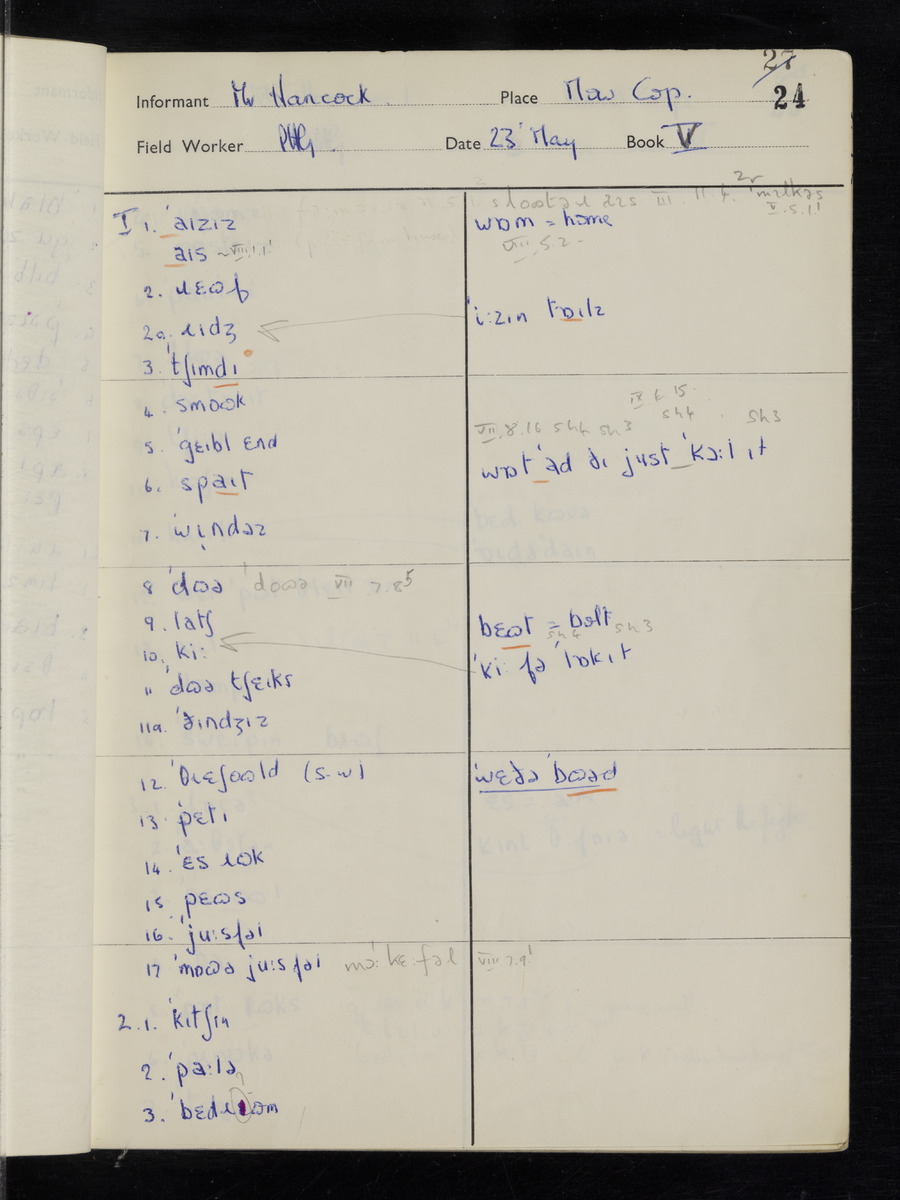 27
24
Informant Mr Hancock. Place Mow Cop.
Field Worker PHG. Date 23 May Book V
I 1. ˈaɪzɪz
aɪs ~ VIII.1.1
2. ɹɛɷf
2a. ɹɪdʒ
3. ˈtʃɪmdɪ
4. smɔɷk
5. ˈgɛɪbl ɛnd
6. spaɪt
7. ˈwɪndəz
8 ˈdɷə ˈdɔɷə VII 7.8⁵
9. latʃ
10. ki:
11 ˈdɷə tʃɛɪks
11a. ˈðɪndʒɪz
12. ˈθɹɛʃɔɷld (s.w)
13. ˈpɛtɪ
14. ˈɛs ɷk
15 pɛɷs
16. ˈju:sfəl
17 ˈmɔɷə ju:sfəl VIII.7.9
2.1. ˈkɪtʃɪn
2. ˈpa:lə
3. ˈbɛdɹ əm
2r
III. 11. 4. V.5.11
wɒm = home
VIII.5.2.
ˈi:zɪn tɒɪlz
IX 6 15.
VII.8.16 sh4 sh3 sh4 sh3
wɒt ˈad ðɪ just ˈkɔ:l ɪt
bɛɷt = bolt
sh4 sh3
ˈki: fə ˈlɷk ɪt
ˈwɛðə ˈbɷəd